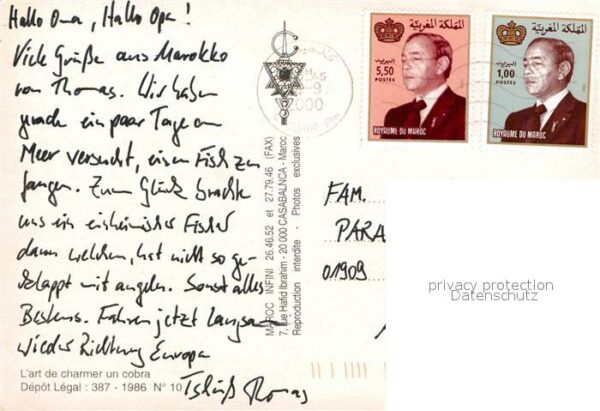 Hallo Oma, Hallo Opa!
Viele Grüße aus Marokko
von Thomas. Wir haben
gerade ein paar Tage am
Meer versucht, einen Fisch zu
fangen. Zum Glück brachte
uns ein einheimischer Fischer
dann welchen, hat nicht so ge-
klappt mit angeln. Sonst alles
Bestens. Fahren jetzt langsam
wieder Richtung Europa
Tschüß Thomas
L'art de charmer un cobra
Dépôt Légal : 387 - 1986 N° 10
MAROC INFINI 26.46.52 et 27.79.46 (FAX)
7, rue Hafid Ibrahim - 20 000 CASABALNCA - Maroc
Reproduction interdite - Photos exclusives
2000
المملكة المغربية
البريد
5,50
POSTES
ROYAUME DU MAROC
المملكة المغربية
البريد
1,00
POSTES
ROYAUME DU MAROC
FAM.
PARA
01909
privacy protection
Datenschutz